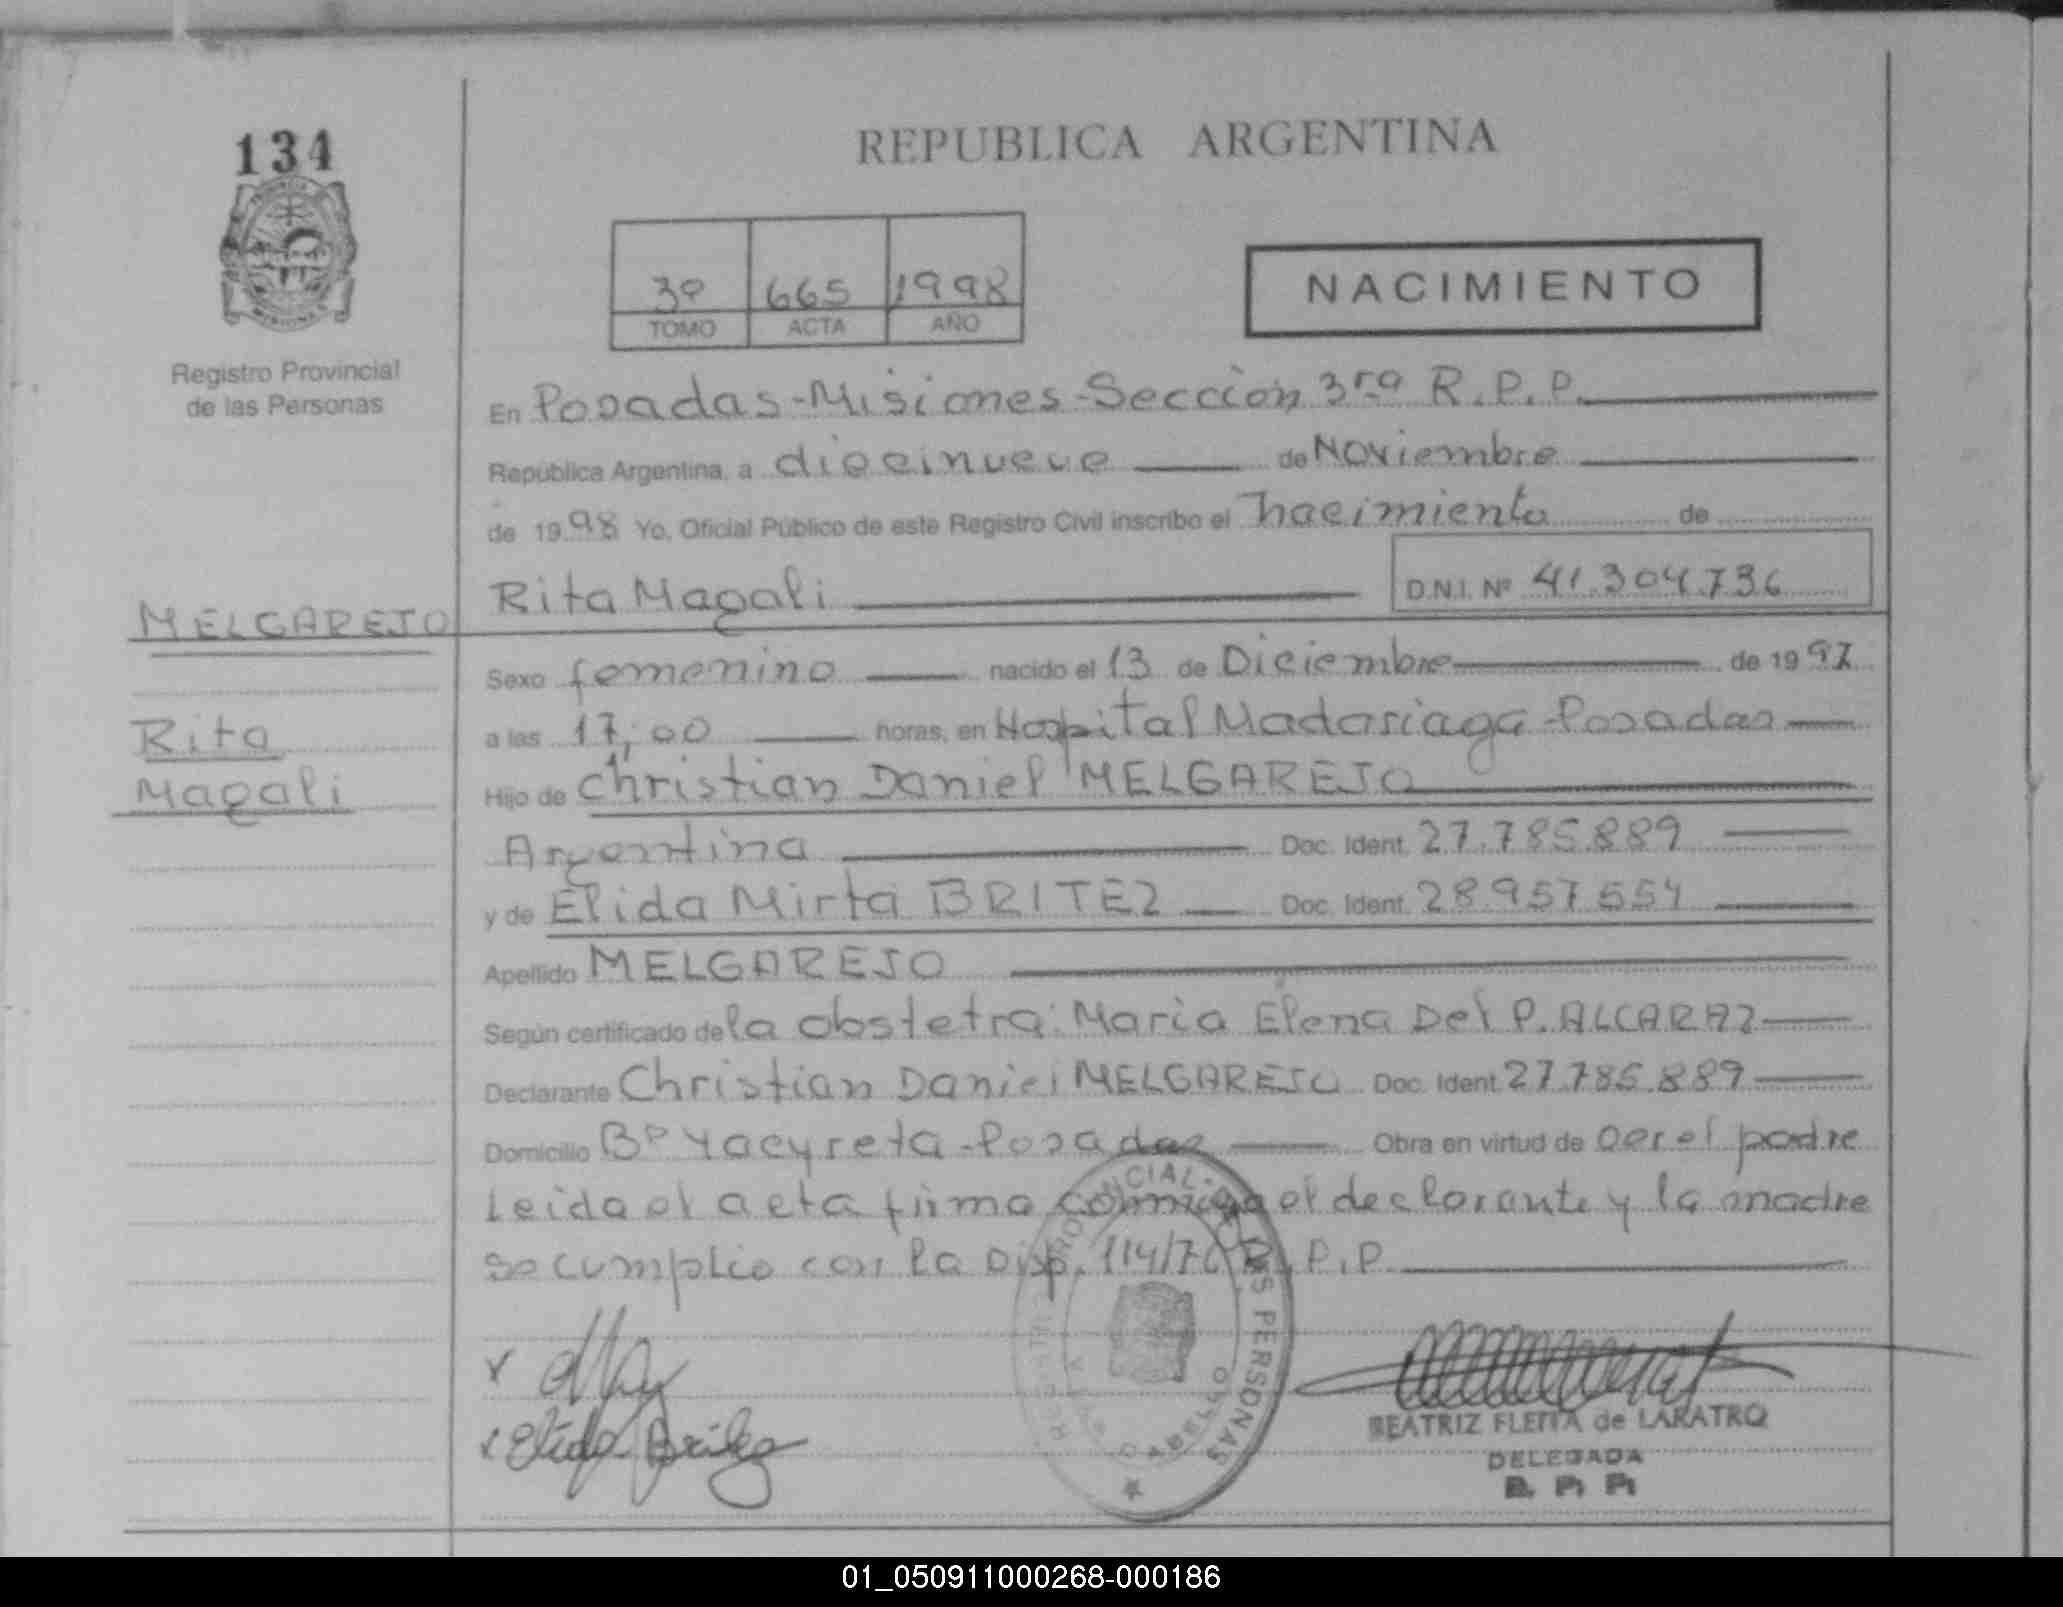 134
REPUBLICA ARGENTINA
3º 665 1998
TOMO ACTA AÑO
NACIMIENTO
Registro Provincial
de las Personas
En Posadas-Misiones-Sección 3ra R.P.P.
República Argentina, a diecinueve de Noviembre
de 1998 Yo, Oficial Público de este Registro Civil inscribo el nacimiento de
Rita Magali D.N.I. Nº 41.304.736
MELGAREJO
Rita
Magali
Sexo femenino nacido el 13 de Diciembre de 1997
a las 17,00 horas, en Hospital Madariaga-Posadas
Hijo de Christian Daniel MELGAREJO
Argentina Doc. Ident. 27.785.889
y de Elida Mirta BRITEZ Doc. Ident. 28.957.554
Apellido MELGAREJO
Según certificado de la obstetra: Maria Elena Del P. ALCARAZ
Declarante Christian Daniel MELGAREJO Doc. Ident. 27.785.889
Domicilio Bº Yacyreta-Posadas Obra en virtud de ser el padre
Leida el acta firma conmigo el declarante y la madre
se cumplio con la Disp. 114/76 R.P.P.
Elida Britez
PERSONAS
CABELLO
BEATRIZ FLEITA de LARATRO
DELEGADA
R. P. P.
01_050911000268-000186